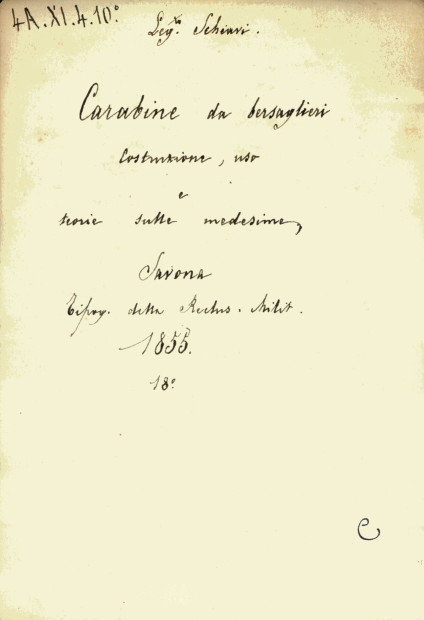 4A.XI.4.10.°
Leg.to Schiavi.
Carabine da bersaglieri
Costruzione, uso
e
teorie sulle medesime,
Savona
Tipog. della Reclus. Milit.
1855.
18°
C